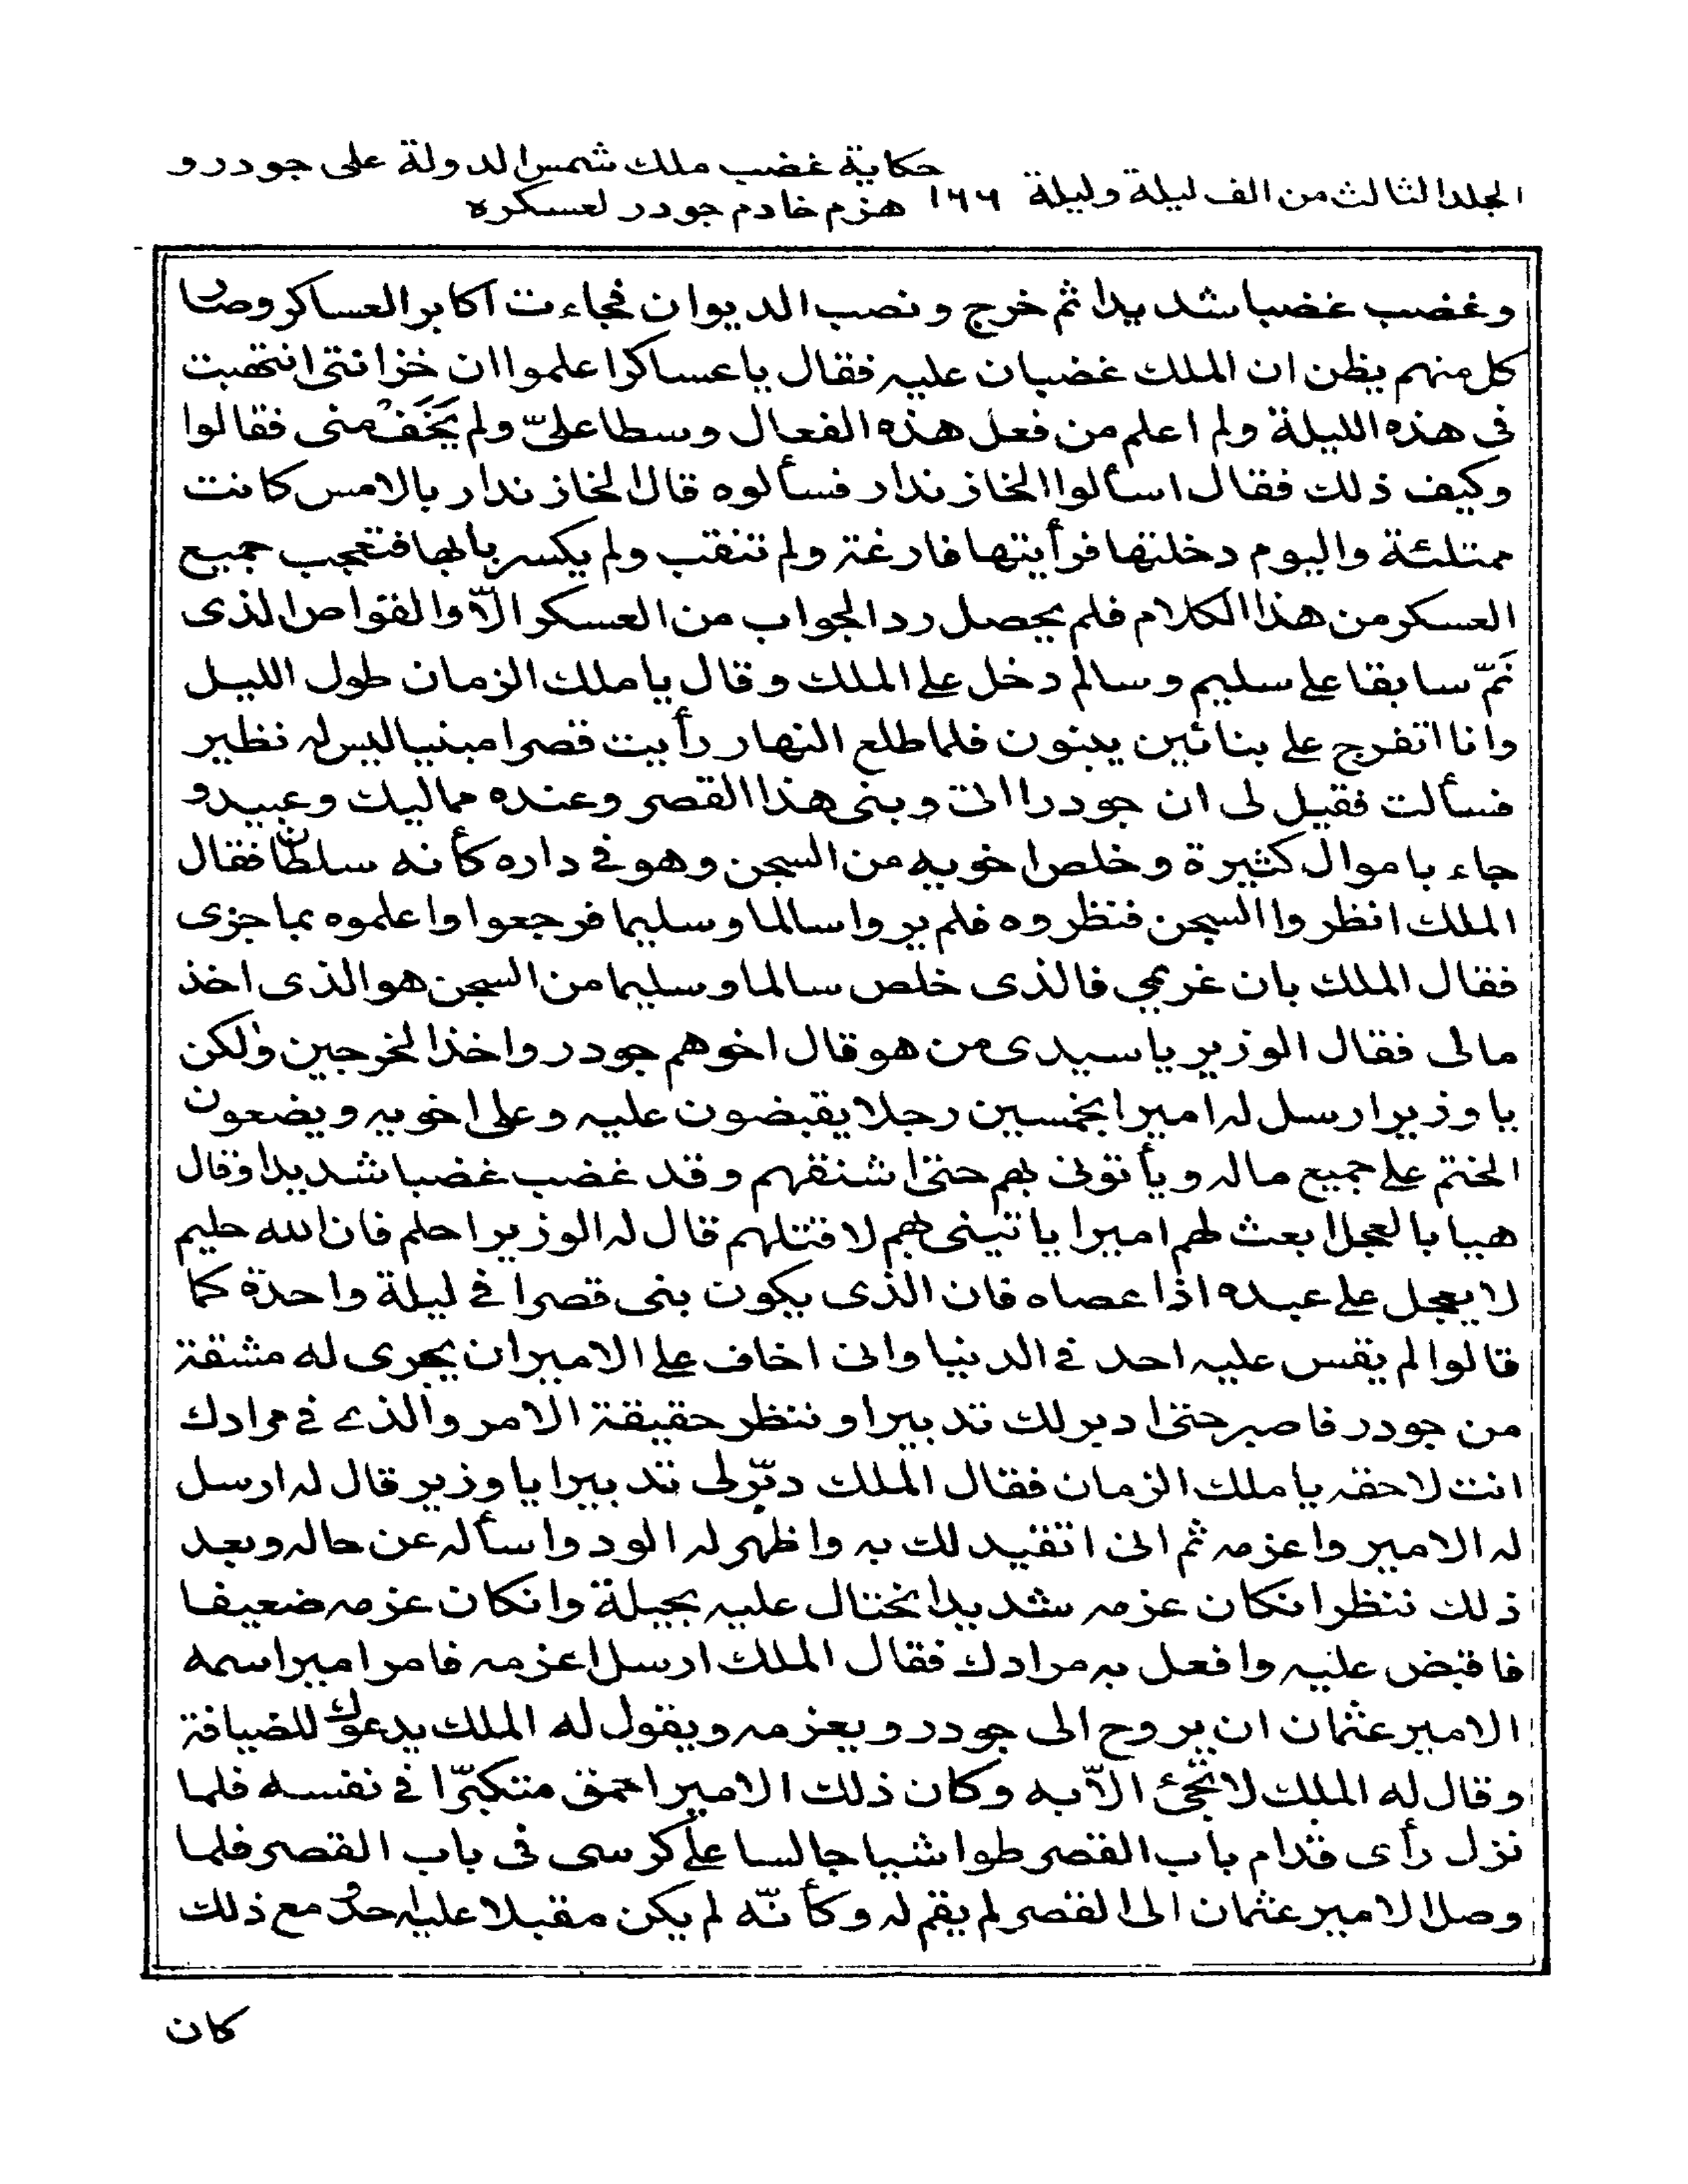 المجلد الثالث من الف ليلة وليلة ١٦٦ حكاية غضب ملك شمس الدولة على جودر و
هزم خادم جودر لعسكره
وغضب غضبا شديدا ثم خرج و نصب الديوان فجاءت اكابر العساكر وصار
كل منهم يظن ان الملك غضبان عليه فقال يا عساكر اعلموا ان خزانتى انتهبت
فى هذه الليلة ولم اعلم من فعل هذه الفعال وسطا علىّ ولم يَخَفْ منى فقالوا
وكيف ذلك فقال اسألوا الخازندار فسألوه قال الخازندار بالامس كانت
ممتلئة واليوم دخلتها فرأيتها فارغة ولم تنقب ولم يكسر بابها فتعجب جميع
العسكر من هذا الكلام فلم يحصل رد الجواب من العسكر الاّ والقواص الذى
نَمّ سابقا على سليم وسالم دخل على الملك وقال يا ملك الزمان طول الليل
وانا اتفرج على بنائين يبنون فلما طلع النهار رأيت قصرا مبنيا ليس له نظير
فسألت فقيل لى ان جودرا اتى وبنى هذا القصر وعنده مماليك وعبيد و
جاء باموال كثيرة وخلص اخويه من السجن وهو فى داره كأنه سلطان فقال
الملك انظروا السجن فنظروه فلم يروا سالما وسليما فرجعوا واعلموه بما جرى
فقال الملك بان غريمى فالذى خلص سالما وسليما من السجن هو الذى اخذ
مالى فقال الوزير يا سيدى من هو قال اخوهم جودر واخذ الخرجين ولكن
يا وزير ارسل له اميرا بخمسين رجلا يقبضون عليه وعلى اخويه ويضعون
الختم على جميع ماله ويأتونى بهم حتى اشنقهم وقد غضب غضبا شديدا وقال
هيا بالعجل ابعث لهم اميرا ياتينى بهم لاقتلهم قال له الوزير احلم فان الله حليم
لا يعجل على عبده اذا عصاه فان الذى يكون بنى قصرا فى ليلة واحدة كما
قالوا لم يقس عليه احد فى الدنيا وانى اخاف على الامير ان يجرى له مشقة
من جودر فاصبر حتى ادبر لك تدبيرا وننظر حقيقة الامر والذى فى مرادك
انت لاحقه يا ملك الزمان فقال الملك دبّر لى تدبيرا يا وزير قال له ارسل
له الامير واعزمه ثم انى اتقيد لك به واظهر له الود واسأله عن حاله وبعد
ذلك ننظر ان كان عزمه شديدا نحتال عليه بحيلة وان كان عزمه ضعيفا
فاقبض عليه وافعل به مرادك فقال الملك ارسل اعزمه فامر اميرا اسمه
الامير عثمان ان يروح الى جودر ويعزمه ويقول له الملك يدعوك للضيافة
وقال له الملك لا تجئ الاّ به وكان ذلك الامير احمق متكبّرا فى نفسه فلما
نزل رأى قدام باب القصر طواشيا جالسا على كرسى فى باب القصر فلما
وصل الامير عثمان الى القصر لم يقم له وكأنّه لم يكن مقبلا عليه احد ومع ذلك
كان